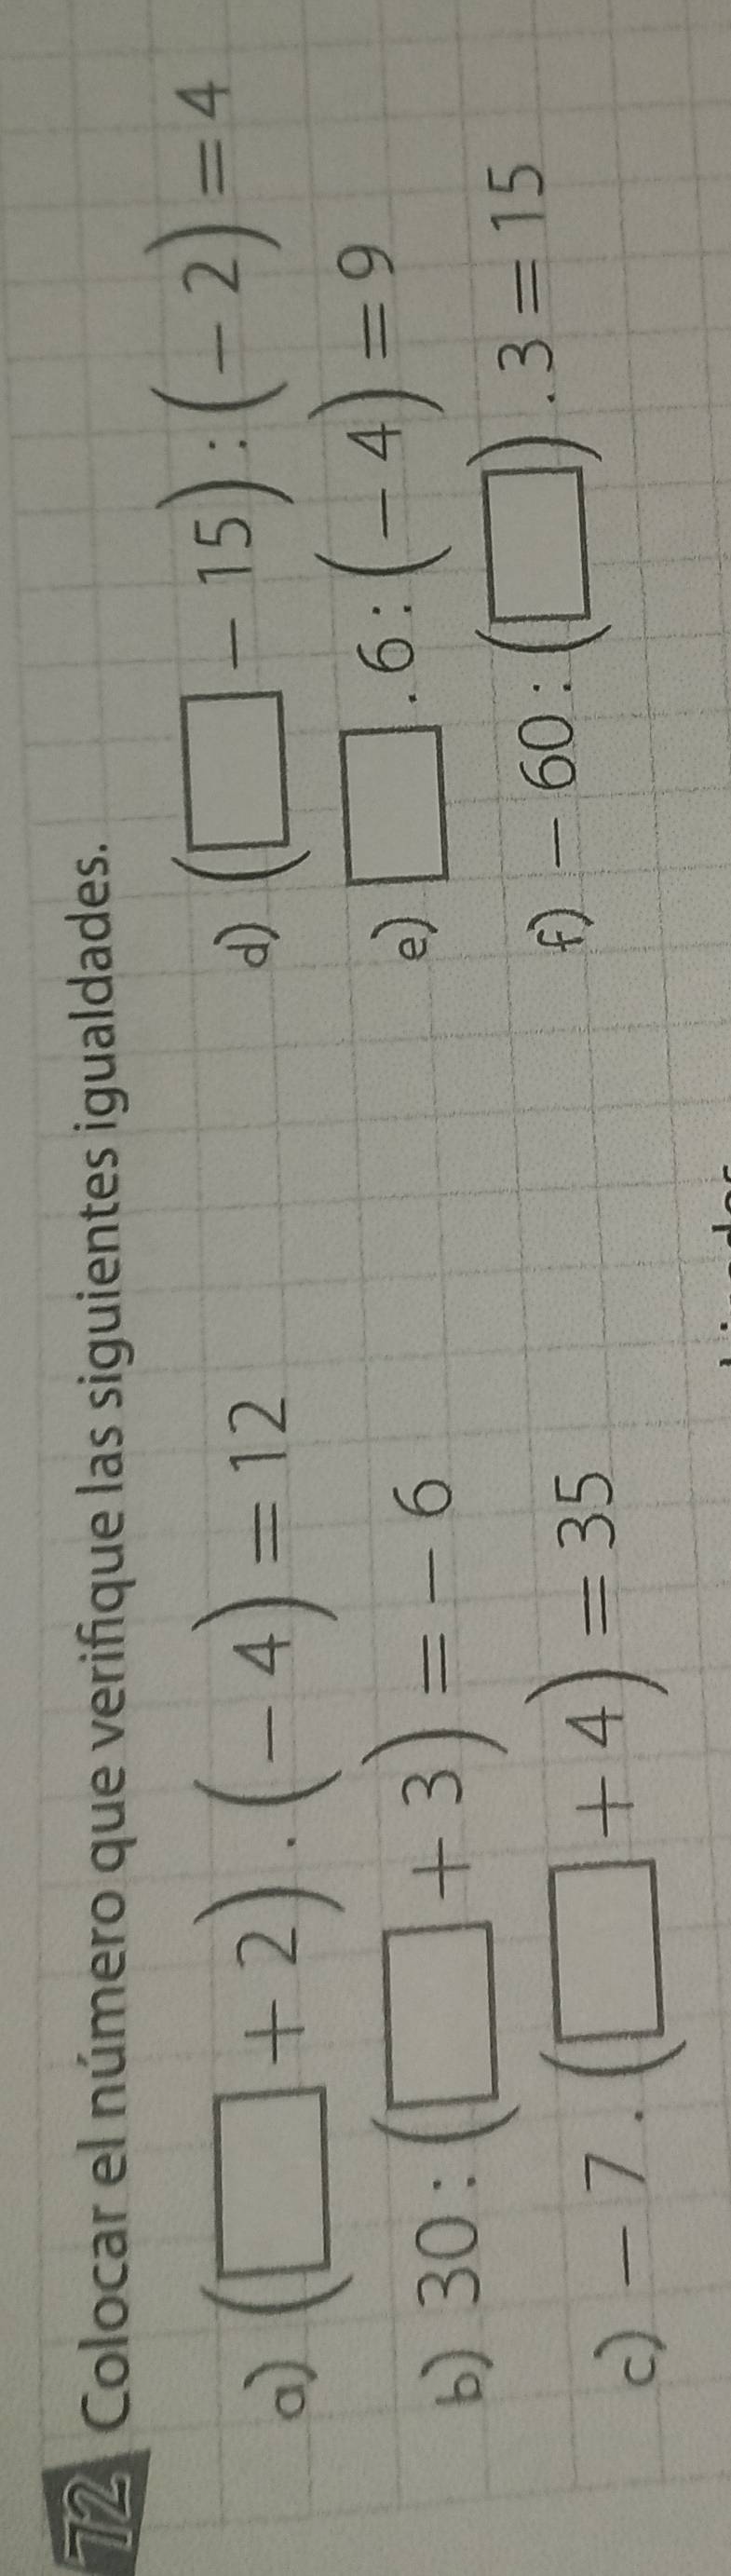 72 Colocar el número que verifique las siguientes igualdades.
a) (□ + 2) . (− 4) = 12
b) 30 : (□ + 3) = − 6
c) − 7 . (□ + 4) = 35
d) (□ − 15) : (− 2) = 4
e) □ . 6 : (− 4) = 9
f) − 60 : (□) . 3 = 15